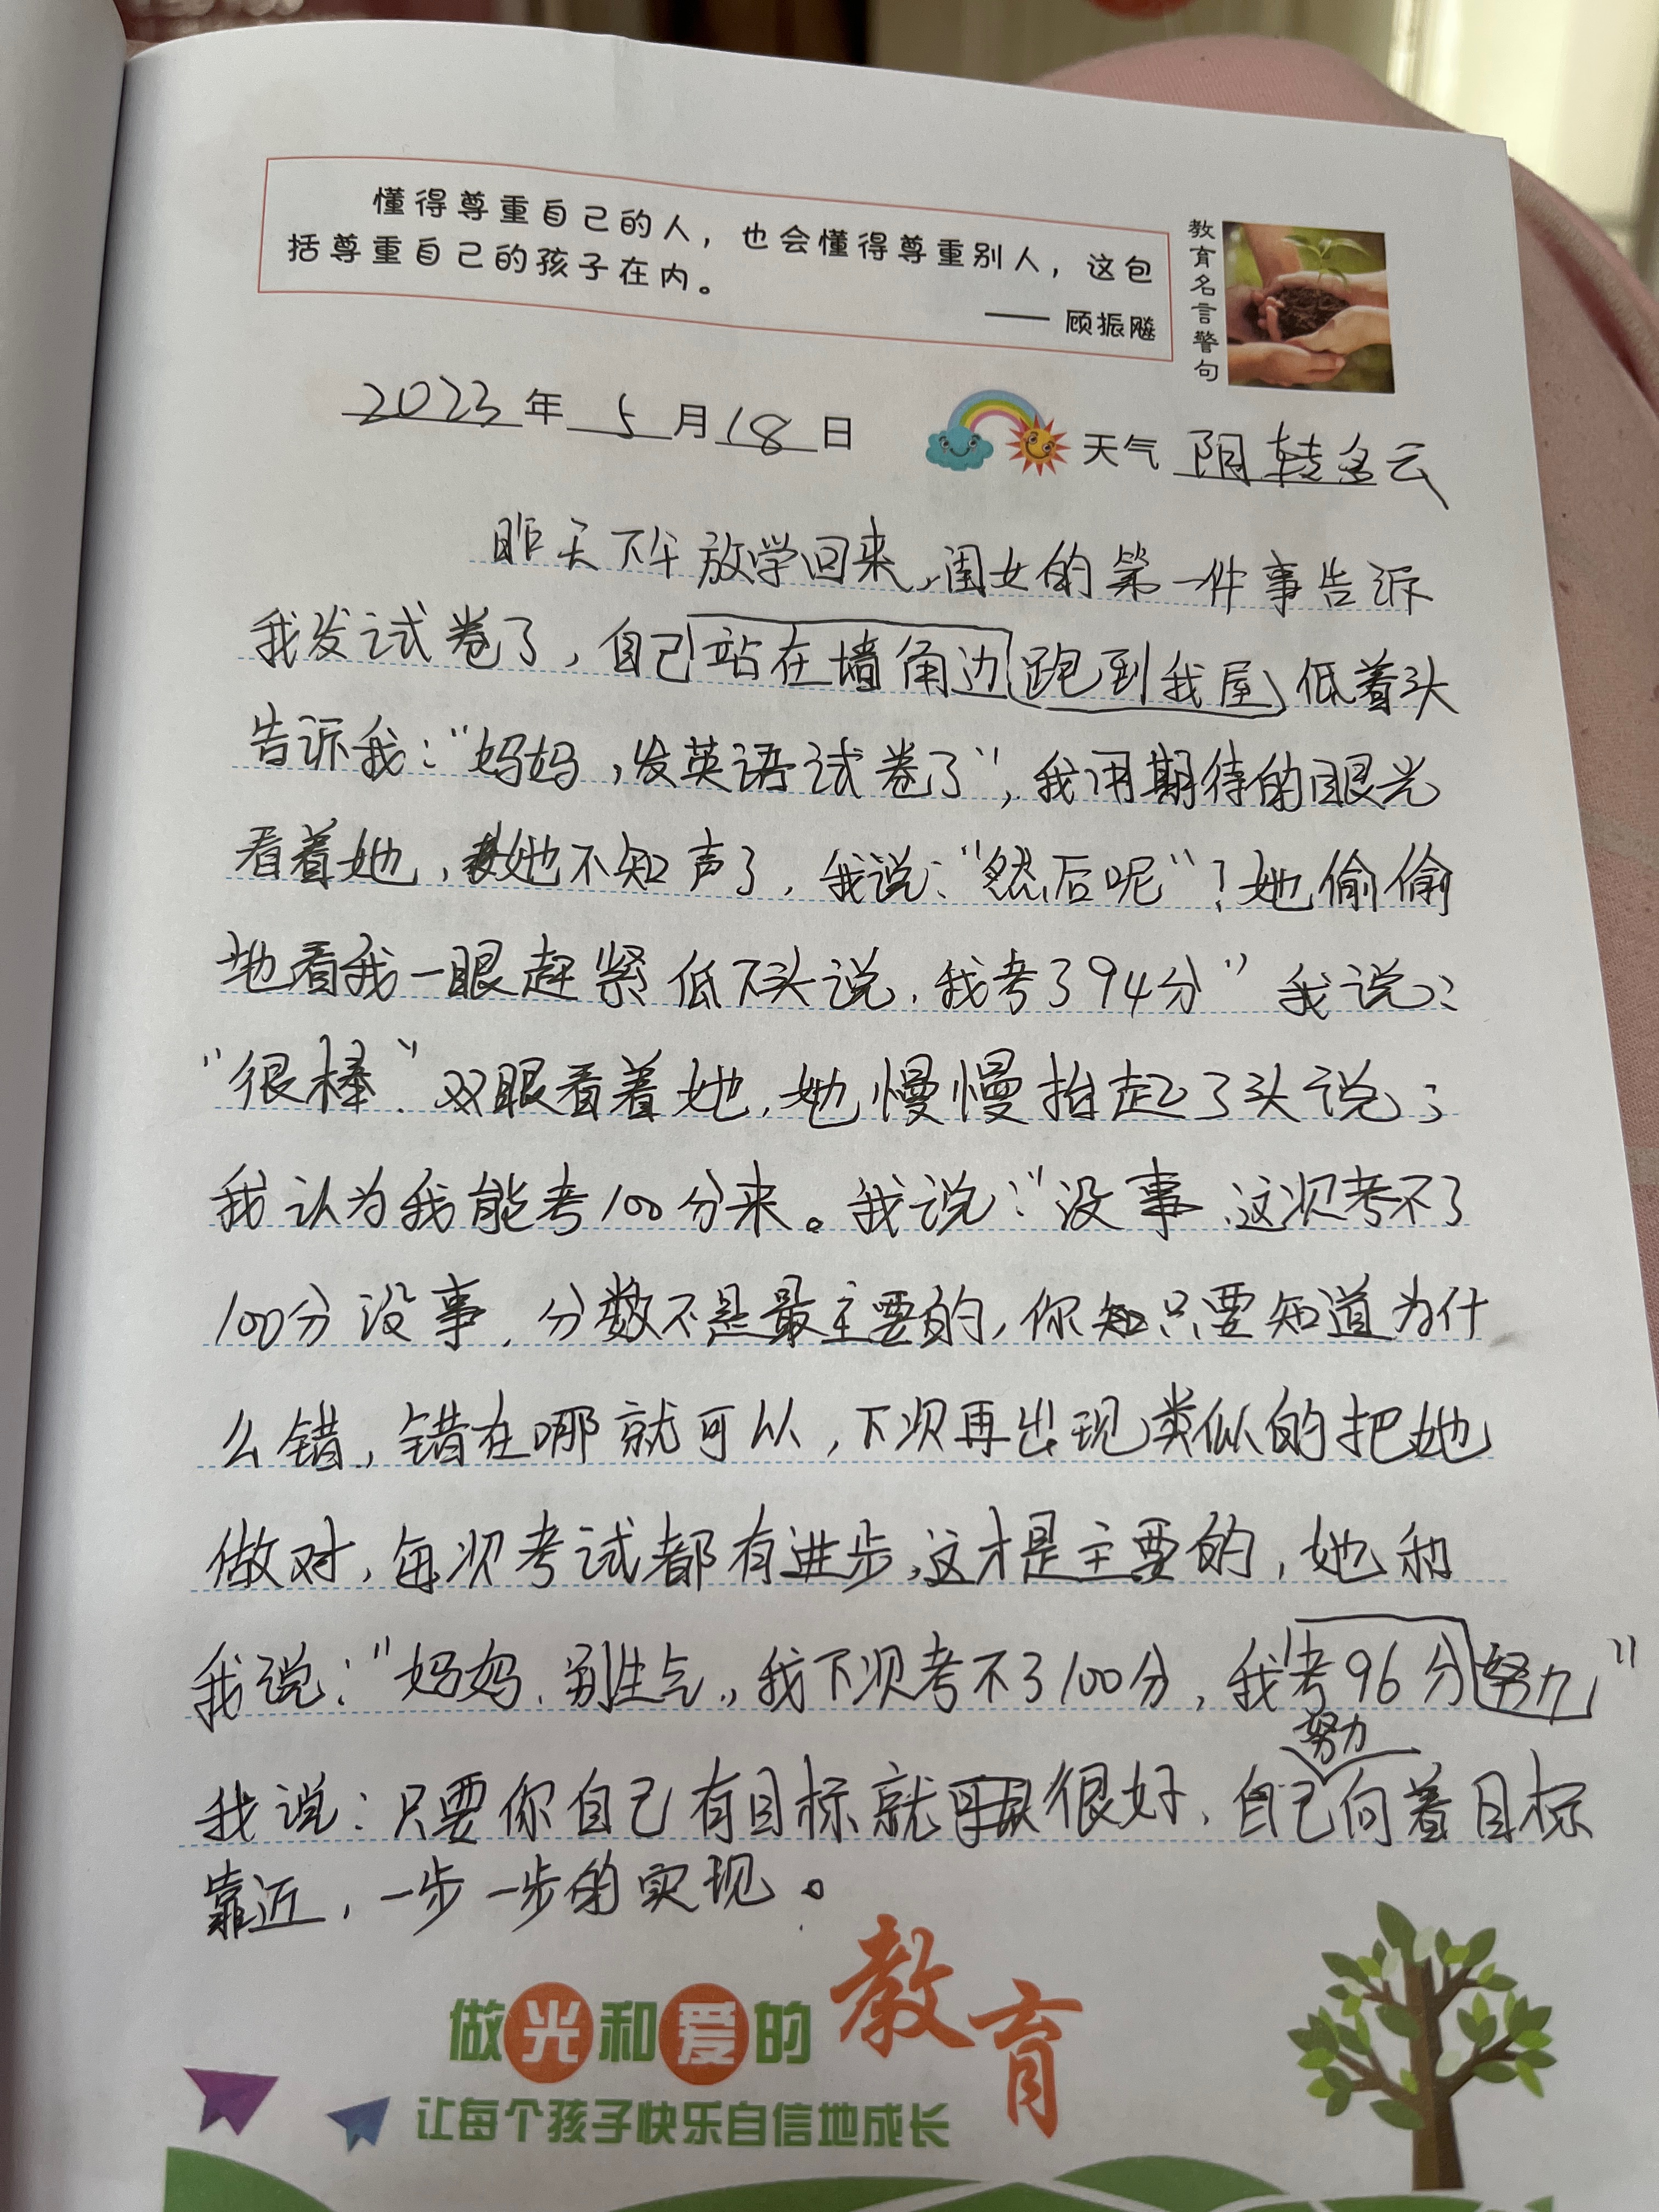 懂得尊重自己的人，也会懂得尊重别人，这包
括尊重自己的孩子在内。
—— 顾振飚
教育名言警句
2023年5月18日 天气 阴转多云
昨天下午放学回来，闺女的第一件事告诉
我发试卷了，自己站在墙角边跑到我屋，低着头
告诉我：“妈妈，发英语试卷了”，我用期待的眼光
看着她，她不知声了，我说：“然后呢”？她偷偷
地看我一眼赶紧低下头说，我考了94分”我说：
“很棒”双眼看着她，她慢慢抬起了头说；
我认为我能考100分来。我说：“没事，这次考不了
100分没事，分数不是最主要的，你只要知道为什
么错，错在哪就可以，下次再出现类似的把她
做对，每次考试都有进步，这才是主要的，她和
我说：“妈妈，别生气，我下次考不了100分，我考96分努力”
努力
我说：只要你自己有目标就很好，自己向着目标
靠近，一步一步的实现。
做光和爱的教育
让每个孩子快乐自信地成长